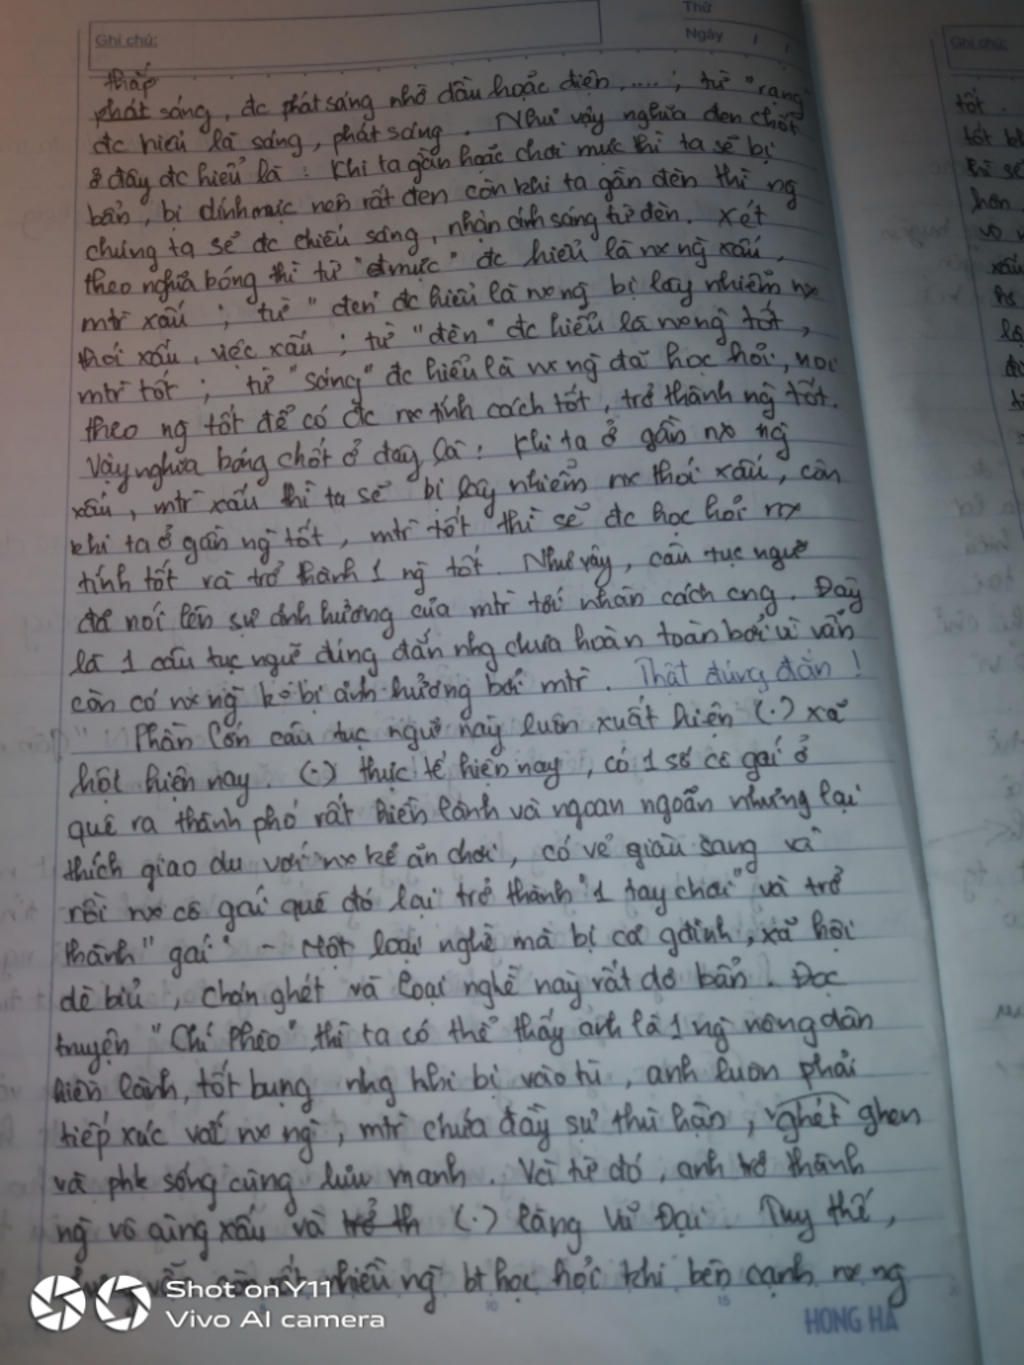 Ghi chú:
Thứ
Ngày / /
thắp
phát sáng, đc phát sáng nhờ dầu hoặc điện,....; từ "rạng"
đc hiểu là sáng, phát sáng. Như vậy nghĩa đen chốt
ở đây đc hiểu là: Khi ta gần hoặc chơi mực thì ta sẽ bị
bẩn, bị dính mực nên rất đen còn khi ta gần đèn thì ng
chúng ta sẽ đc chiếu sáng, nhận ánh sáng từ đèn. Xét
theo nghĩa bóng thì từ "mực" đc hiểu là nx ng xấu,
mtr xấu; từ "đen" đc hiểu là nx ng bị lây nhiễm nx
thói xấu, việc xấu; từ "đèn" đc hiểu là nx ng tốt,
mtr tốt; từ "sáng" đc hiểu là nx ng đã học hỏi, noi
theo ng tốt để có đc nx tính cách tốt, trở thành ng tốt.
Vậy nghĩa bóng chốt ở đây là: Khi ta ở gần nx ng
xấu, mtr xấu thì ta sẽ bị lây nhiễm nx thói xấu, còn
khi ta ở gần ng tốt, mtr tốt thì sẽ đc học hỏi nx
tính tốt và trở thành 1 ng tốt. Như vậy, câu tục ngữ
đã nói lên sự ảnh hưởng của mtr tới nhân cách cng. Đây
là 1 câu tục ngữ đúng đắn nhg chưa hoàn toàn bởi vì vẫn
còn có nx ng ko bị ảnh hưởng bởi mtr. Thật đúng đắn!
Phần lớn câu tục ngữ này luôn xuất hiện (.) xã
hội hiện nay. (.) thực tế hiện nay, có 1 số cô gái ở
quê ra thành phố rất hiền lành và ngoan ngoãn nhưng lại
thích giao du với nx kẻ ăn chơi, có vẻ giàu sang và
rồi nx cô gái quê đó lại trở thành "1 tay chơi" và trở
thành "gái" - Một loại nghề mà bị cả gđình, xã hội
dè bỉu, chán ghét và loại nghề này rất dơ bẩn. Đọc
truyện "Chí Phèo" thì ta có thể thấy anh là 1 ng nông dân
hiền lành, tốt bụng nhg khi bị vào tù, anh luôn phải
tiếp xúc với nx ng, mtr chứa đầy sự thù hận, ghét ghen
và phk sống cùng lưu manh. Và từ đó, anh trở thành
ng vô cùng xấu và trở th (.) làng Vũ Đại. Tuy thế,
vẫn còn rất nhiều ng bt học hỏi khi bên cạnh nx ng
HONG HA
Shot on Y11
Vivo AI camera